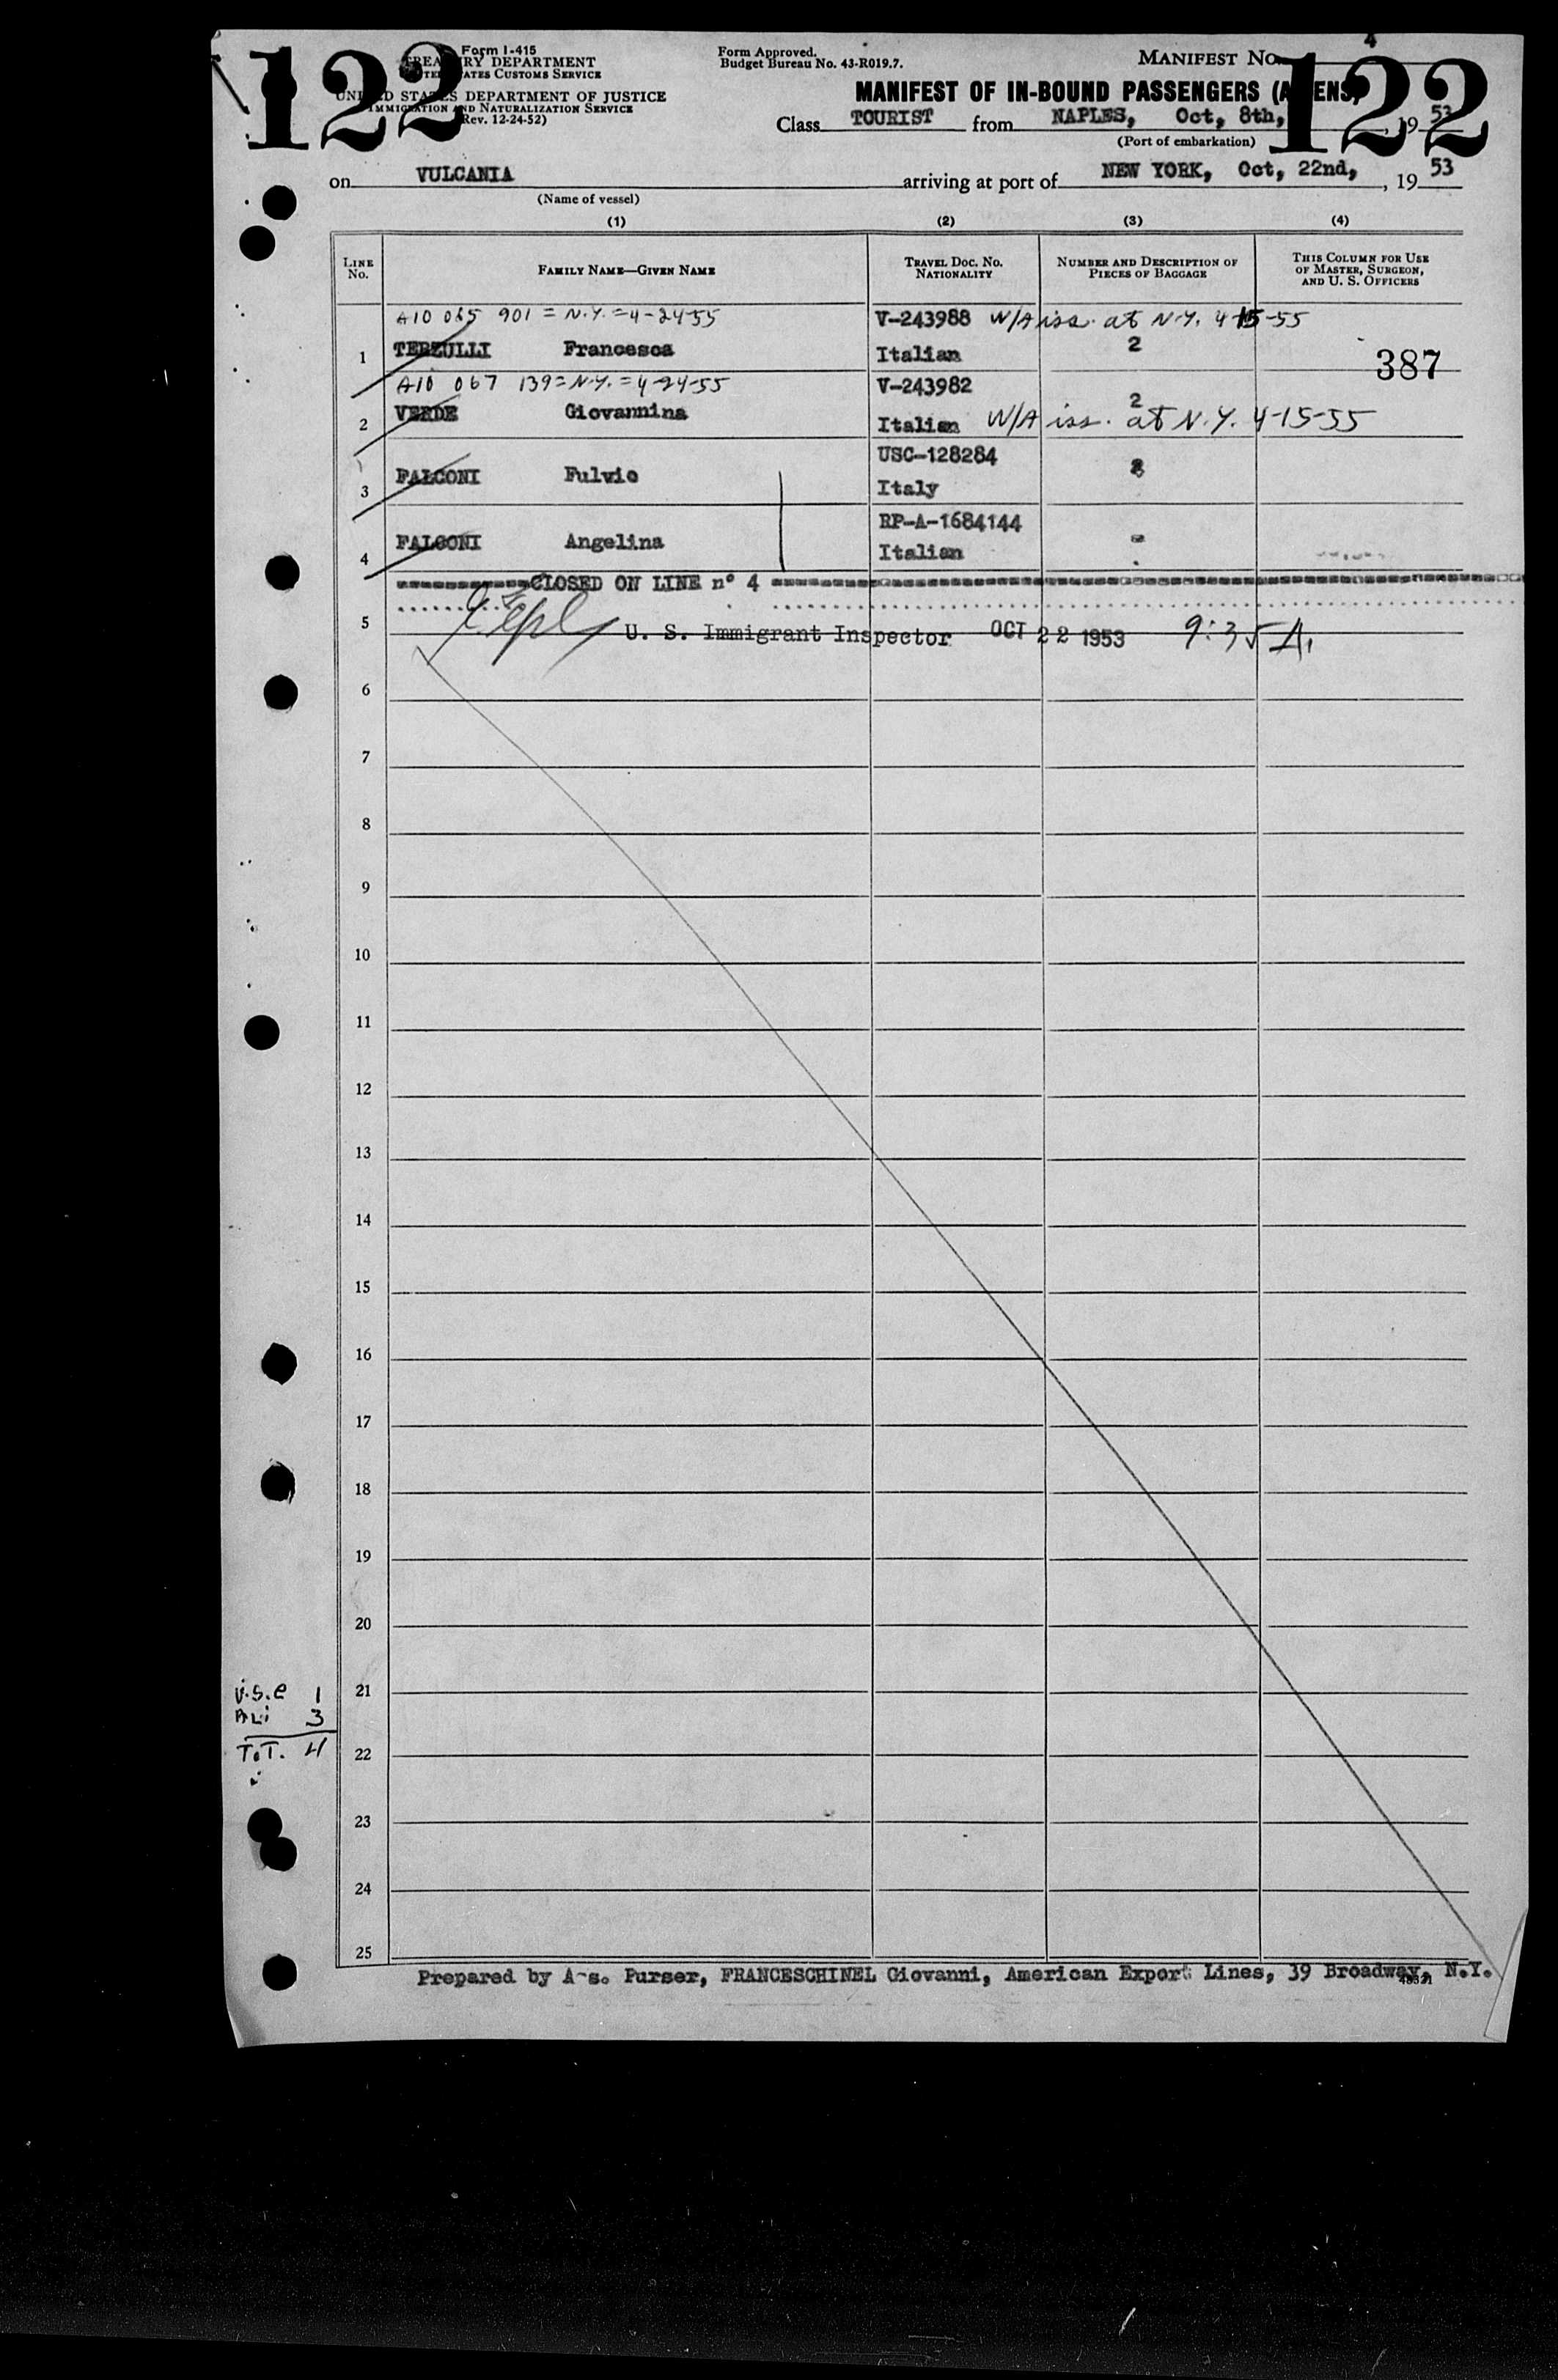 122
122
Form I-415
TREASURY DEPARTMENT
UNITED STATES CUSTOMS SERVICE
UNITED STATES DEPARTMENT OF JUSTICE
IMMIGRATION AND NATURALIZATION SERVICE
(Rev. 12-24-52)
Form Approved.
Budget Bureau No. 43-R019.7.
MANIFEST No. 4
MANIFEST OF IN-BOUND PASSENGERS (ALIENS)
Class TOURIST from NAPLES, Oct, 8th, 1953
(Port of embarkation)
on VULCANIA arriving at port of NEW YORK, Oct, 22nd, , 19 53
(Name of vessel)
(1) (2) (3) (4)
LINE No. FAMILY NAME—GIVEN NAME TRAVEL DOC. No. NATIONALITY NUMBER AND DESCRIPTION OF PIECES OF BAGGAGE THIS COLUMN FOR USE OF MASTER, SURGEON, AND U. S. OFFICERS
A10 065 901 = N.Y. = 4-24-55 V-243988 W/A iss. at N.Y. 4-15-55
1 TERZULLI Francesca Italian 2 387
A10 067 139 = N.Y. = 4-24-55 V-243982
2 VERDE Giovannina Italian 2 W/A iss. at N.Y. 4-15-55
USC-128284
3 FALCONI Fulvio Italy
RP-A-1684144
4 FALCONI Angelina Italian -
CLOSED ON LINE n° 4
5 U. S. Immigrant Inspector OCT 22 1953 9:35 A.
6
7
8
9
10
11
12
13
14
15
16
17
18
19
20
21
22
23
24
25
U.S.C 1
Ali 3
TOT. 4
Prepared by Ass. Purser, FRANCESCHINEL Giovanni, American Export Lines, 39 Broadway, N.Y.